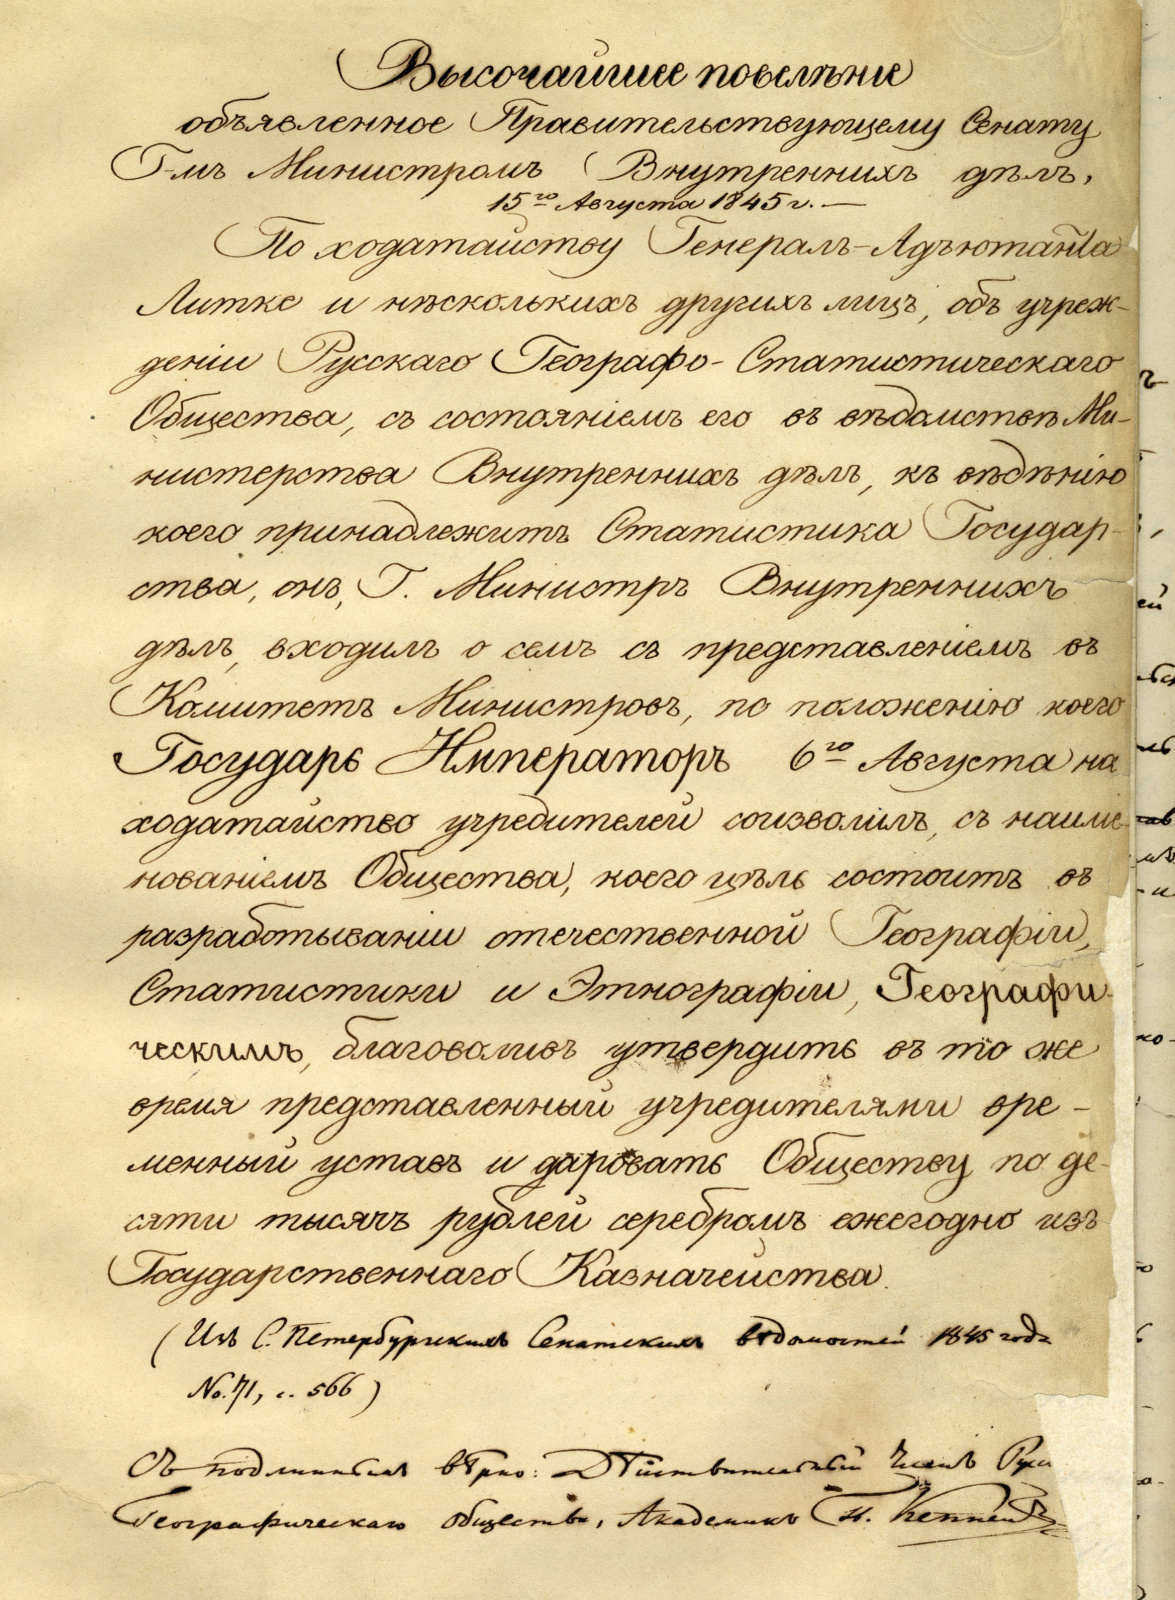 Высочайшее повелѣніе
объявленное Правительствующему Сенату
Г-мъ Министромъ Внутреннихъ дѣлъ,
15го Августа 1845 г. —
По ходатайству Генералъ-Адъютанта
Литке и нѣсколькихъ другихъ лицъ, объ учреж-
деніи Русскаго Географо-Статистическаго
Общества, съ состояніемъ его въ вѣдомствѣ Ми-
нистерства Внутреннихъ дѣлъ, къ вѣдѣнію
коего принадлежитъ Статистика Государ-
ства, онъ, Г. Министръ Внутреннихъ
дѣлъ, входилъ о семъ съ представленіемъ въ
Комитетъ Министровъ, по положенію коего
Государь Императоръ 6го Августа на
ходатайство учредителей соизволилъ, съ наиме-
нованіемъ Общества, коего цѣль состоитъ въ
разработываніи отечественной Географіи,
Статистики и Этнографіи, Географи-
ческимъ, благоволивъ утвердить въ то же
время представленный учредителями вре-
менный уставъ и даровать Обществу по де-
сяти тысячъ рублей серебромъ ежегодно изъ
Государственнаго Казначейства.
(Изъ С. Петербургскихъ Сенатскихъ вѣдомостей 1845 года
No. 71, с. 566)
Съ подлиннымъ вѣрно: Дѣйствительный Членъ Русс
Географическаго общества, Академикъ П. Кеппенъ